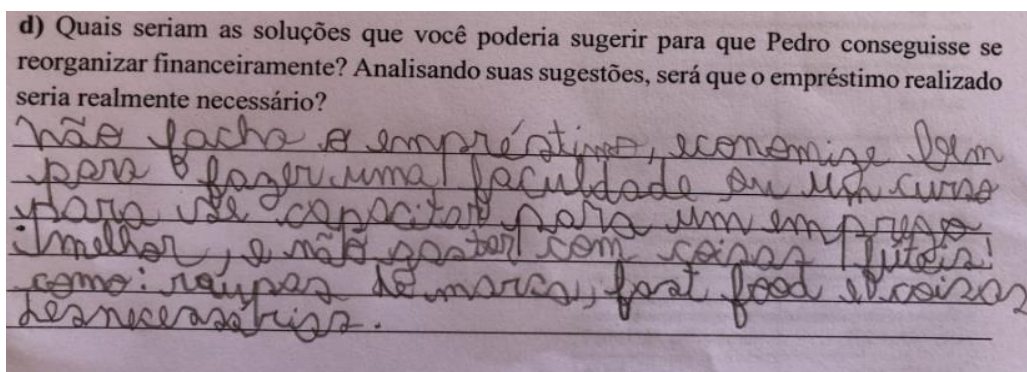 d) Quais seriam as soluções que você poderia sugerir para que Pedro conseguisse se
reorganizar financeiramente? Analisando suas sugestões, será que o empréstimo realizado
seria realmente necessário?
não facha o empréstimo, economize bem
para fazer uma faculdade ou um curso
para se capacitar para um emprego
melhor, e não gastar com coisas fúteis!
como: roupas de marca, fast food e coisas
desnecessárias.